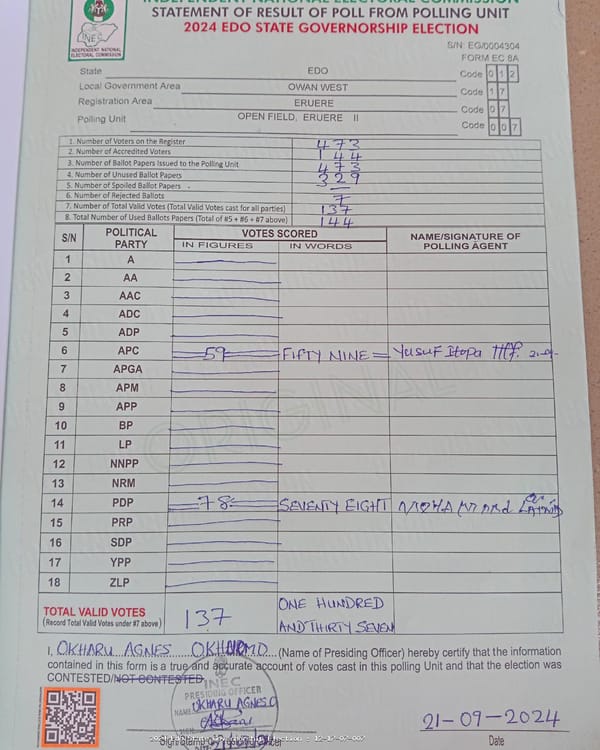 INDEPENDENT NATIONAL ELECTORAL COMMISSION
STATEMENT OF RESULT OF POLL FROM POLLING UNIT
2024 EDO STATE GOVERNORSHIP ELECTION
INEC
INDEPENDENT NATIONAL
ELECTORAL COMMISSION
S/N: EG/0004304
FORM EC 8A
State EDO Code 0 1 2
Local Government Area OWAN WEST Code 1 7
Registration Area ERUERE Code 0 7
Polling Unit OPEN FIELD, ERUERE II Code 0 0 7
1. Number of Voters on the Register 473
2. Number of Accredited Voters 144
3. Number of Ballot Papers Issued to the Polling Unit 473
4. Number of Unused Ballot Papers 329
5. Number of Spoiled Ballot Papers –
6. Number of Rejected Ballots 7
7. Number of Total Valid Votes (Total Valid Votes cast for all parties) 137
8. Total Number of Used Ballots Papers (Total of #5 + #6 + #7 above) 144
S/N POLITICAL PARTY VOTES SCORED NAME/SIGNATURE OF POLLING AGENT
IN FIGURES IN WORDS
1 A
2 AA
3 AAC
4 ADC
5 ADP
6 APC 59 FIFTY NINE Yusuf Itopa
7 APGA
8 APM
9 APP
10 BP
11 LP
12 NNPP
13 NRM
14 PDP 78 SEVENTY EIGHT
15 PRP
16 SDP
17 YPP
18 ZLP
ORIGINAL
TOTAL VALID VOTES 137 ONE HUNDRED
(Record Total Valid Votes under #7 above) AND THIRTY SEVEN
I, OKHARU AGNES (Name of Presiding Officer) hereby certify that the information
contained in this form is a true and accurate account of votes cast in this polling Unit and that the election was
CONTESTED/NOT CONTESTED.
INEC
PRESIDING OFFICER
NAME OKHARU AGNES O
21-09-2024
Date